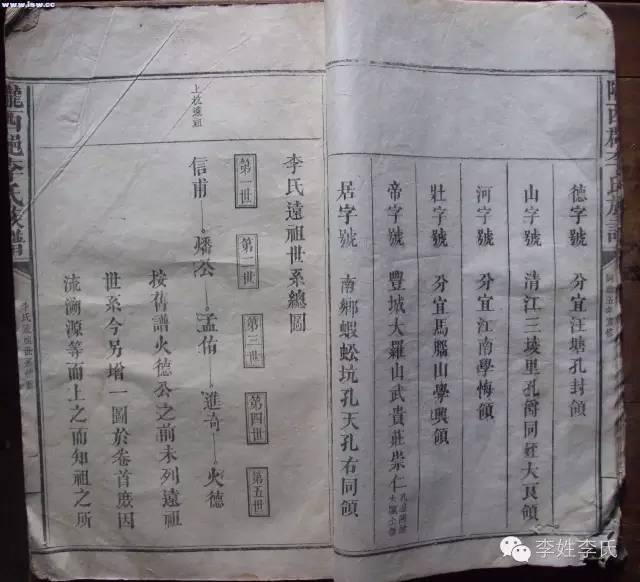 www.lsw.cc
德字號 分宜汪塘孔封領
山字號 清江三堎里孔衡同姪大良領
河字號 分宜江南學悔領
壯字號 分宜馬腦山學興領
帝字號 豐城大羅山武貴莊崇仁
居字號 南鄉蝦蚣坑孔天孔右同領
隴西郡李氏族譜
上枝遠祖
李氏遠祖世系總圖
第一世 第二世 第三世 第四世 第五世
信甫 燔公 孟侑 進奇 火德
按舊譜火德公之前未列遠祖
世系今另增一圖於卷首庶因
流溯源等而上之而知祖之所
隴西郡李氏族譜
李姓李氏